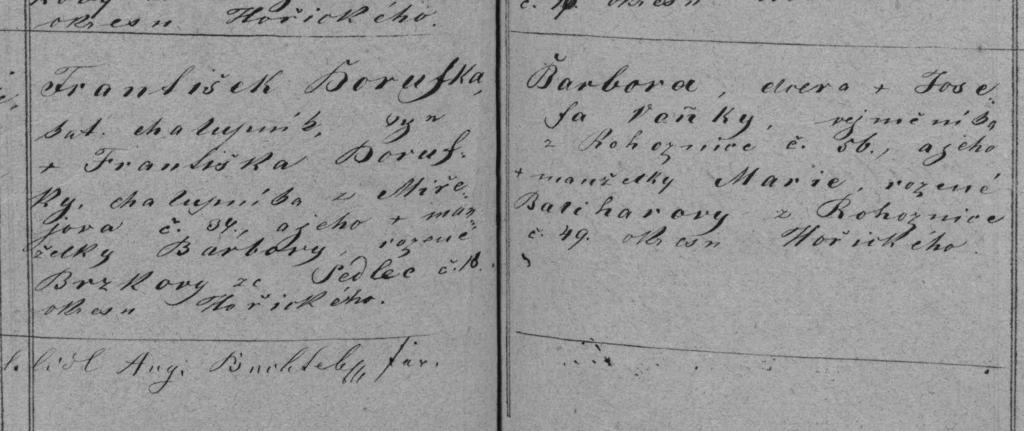 okresu Hořického.
František Doruška,
bat. chalupník, syn
+ Františka Doruš-
ky, chalupníka z Miře-
jova č. 34, a jeho + man-
želky Barbory, rozené
Brzkovy ze Sedlec č. 18.
okresu Hořického.
Aug.
č. okresu
Barbora, dcera + Jose-
fa Vaňky, vejměníka
z Rohoznice č. 56., a jeho
+ manželky Marie, rozené
Baliharovy z Rohoznice
č. 49. okresu Hořického.